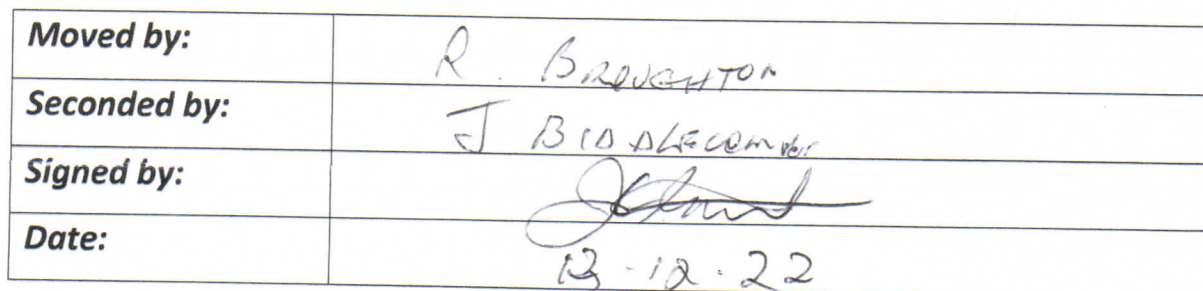 Moved by: R. BROUGHTON
Seconded by: J
Signed by:
Date: 13-12-22